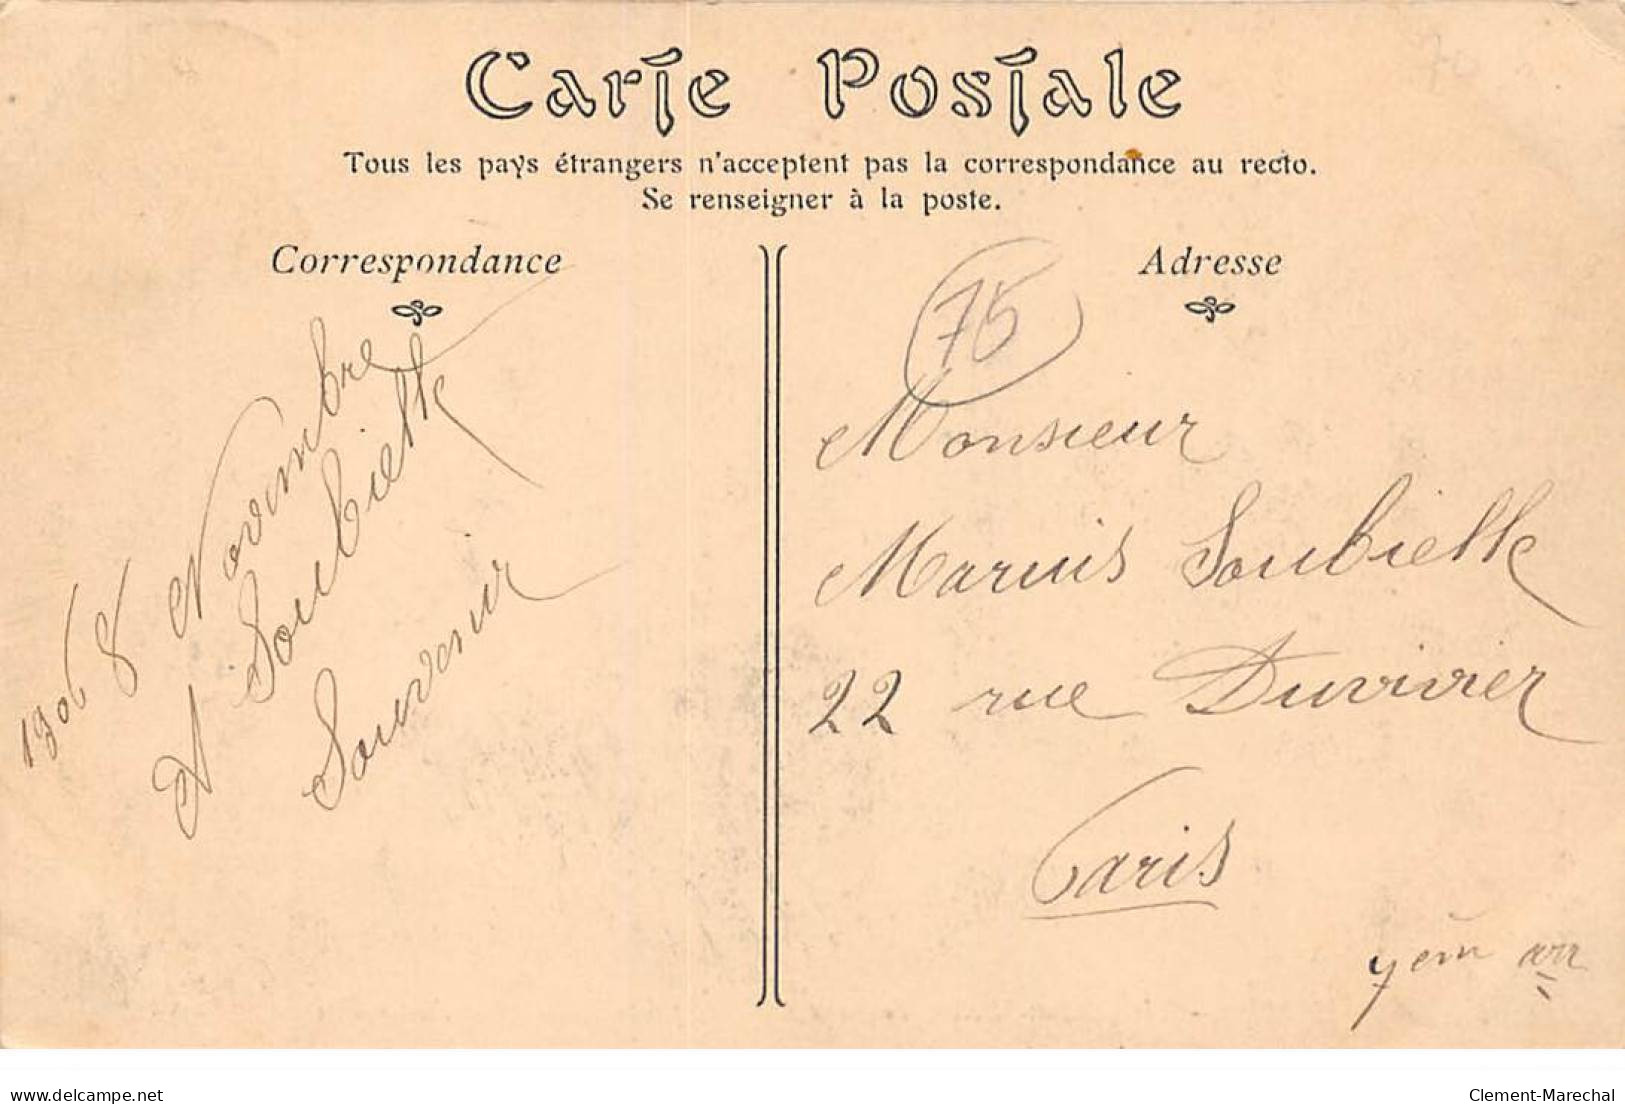 Carte Postale
Tous les pays étrangers n'acceptent pas la correspondance au recto.
Se renseigner à la poste.
Correspondance
1906 8 Novembre
A Soubielle
Souvenir
Adresse
75
Monsieur
Marius Soubielle
22 rue Duvivier
Paris
7em arr
delcampe.net
Clement-Marechal